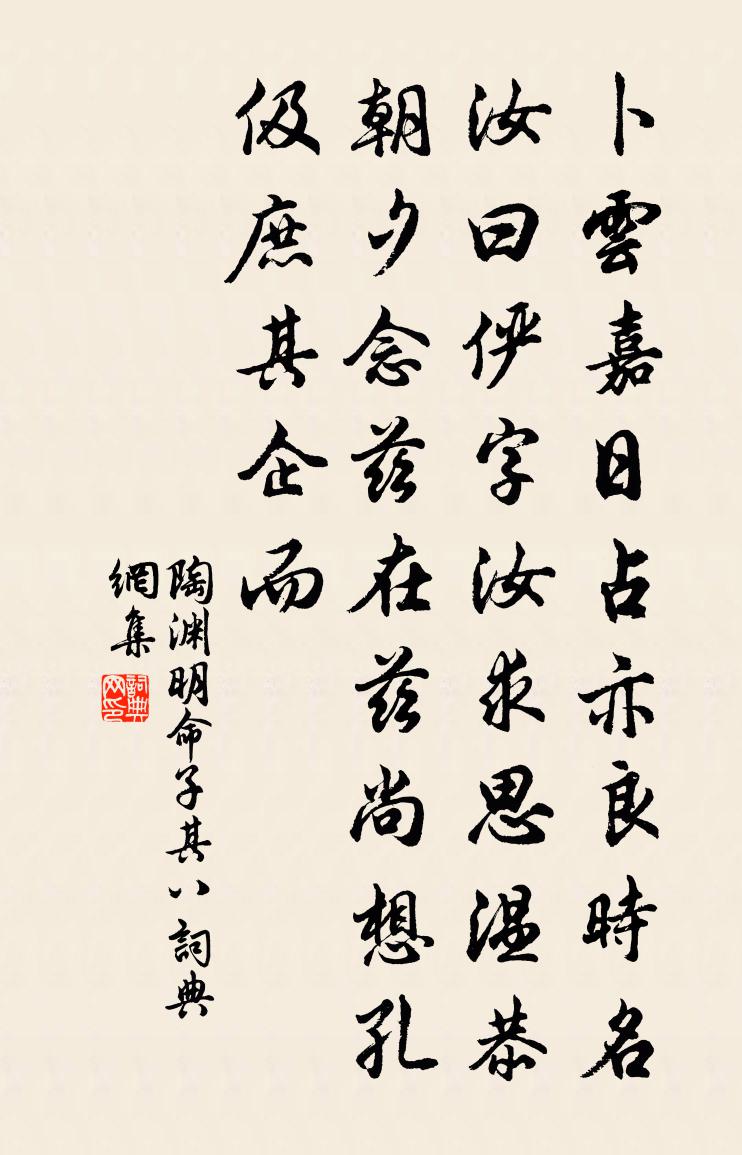 卜雲嘉日占亦良時名
汝曰俨字汝求思温恭
朝夕念茲在茲尚想孔
伋庶其企而
陶渊明命子其八詞典
網集
詞典
网印